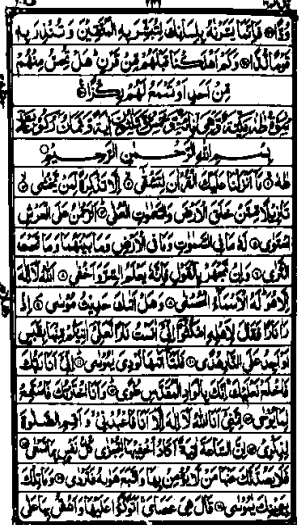 وُدًّا ۝ فَاِنَّمَا يَسَّرْنٰهُ بِلِسَانِكَ لِتُبَشِّرَ بِهِ الْمُتَّقِيْنَ وَتُنْذِرَ بِهٖ
قَوْمًا لُّدًّا ۝ وَكَمْ اَهْلَكْنَا قَبْلَهُمْ مِّنْ قَرْنٍ هَلْ تُحِسُّ مِنْهُمْ
مِّنْ اَحَدٍ اَوْ تَسْمَعُ لَهُمْ رِكْزًا ۝
بِسْمِ اللهِ الرَّحْمٰنِ الرَّحِيْمِ
طٰهٰ ۝ مَا اَنْزَلْنَا عَلَيْكَ الْقُرْاٰنَ لِتَشْقٰى ۝ اِلَّا تَذْكِرَةً لِّمَنْ يَّخْشٰى ۝
تَنْزِيْلًا مِّمَّنْ خَلَقَ الْاَرْضَ وَالسَّمٰوٰتِ الْعُلٰى ۝ اَلرَّحْمٰنُ عَلَى الْعَرْشِ
اسْتَوٰى ۝ لَهٗ مَا فِى السَّمٰوٰتِ وَمَا فِى الْاَرْضِ وَمَا بَيْنَهُمَا وَمَا تَحْتَ
الثَّرٰى ۝ وَاِنْ تَجْهَرْ بِالْقَوْلِ فَاِنَّهٗ يَعْلَمُ السِّرَّ وَاَخْفٰى ۝ اَللهُ لَا اِلٰهَ
اِلَّا هُوَ لَهُ الْاَسْمَآءُ الْحُسْنٰى ۝ وَهَلْ اَتٰىكَ حَدِيْثُ مُوْسٰى ۝ اِذْ
رَاٰ نَارًا فَقَالَ لِاَهْلِهِ امْكُثُوْا اِنِّىْ اٰنَسْتُ نَارًا لَّعَلِّىْ اٰتِيْكُمْ مِّنْهَا بِقَبَسٍ
اَوْ اَجِدُ عَلَى النَّارِ هُدًى ۝ فَلَمَّا اَتٰىهَا نُوْدِىَ يٰمُوْسٰى ۝ اِنِّىْ اَنَا رَبُّكَ
فَاخْلَعْ نَعْلَيْكَ اِنَّكَ بِالْوَادِ الْمُقَدَّسِ طُوًى ۝ وَاَنَا اخْتَرْتُكَ فَاسْتَمِعْ
لِمَا يُوْحٰى ۝ اِنَّنِىْ اَنَا اللهُ لَا اِلٰهَ اِلَّا اَنَا فَاعْبُدْنِىْ وَاَقِمِ الصَّلٰوةَ
لِذِكْرِىْ ۝ اِنَّ السَّاعَةَ اٰتِيَةٌ اَكَادُ اُخْفِيْهَا لِتُجْزٰى كُلُّ نَفْسٍ بِمَا تَسْعٰى ۝
فَلَا يَصُدَّنَّكَ عَنْهَا مَنْ لَّا يُؤْمِنُ بِهَا وَاتَّبَعَ هَوٰىهُ فَتَرْدٰى ۝ وَمَا تِلْكَ
بِيَمِيْنِكَ يٰمُوْسٰى ۝ قَالَ هِىَ عَصَاىَ اَتَوَكَّؤُا عَلَيْهَا وَاَهُشُّ بِهَا عَلٰى